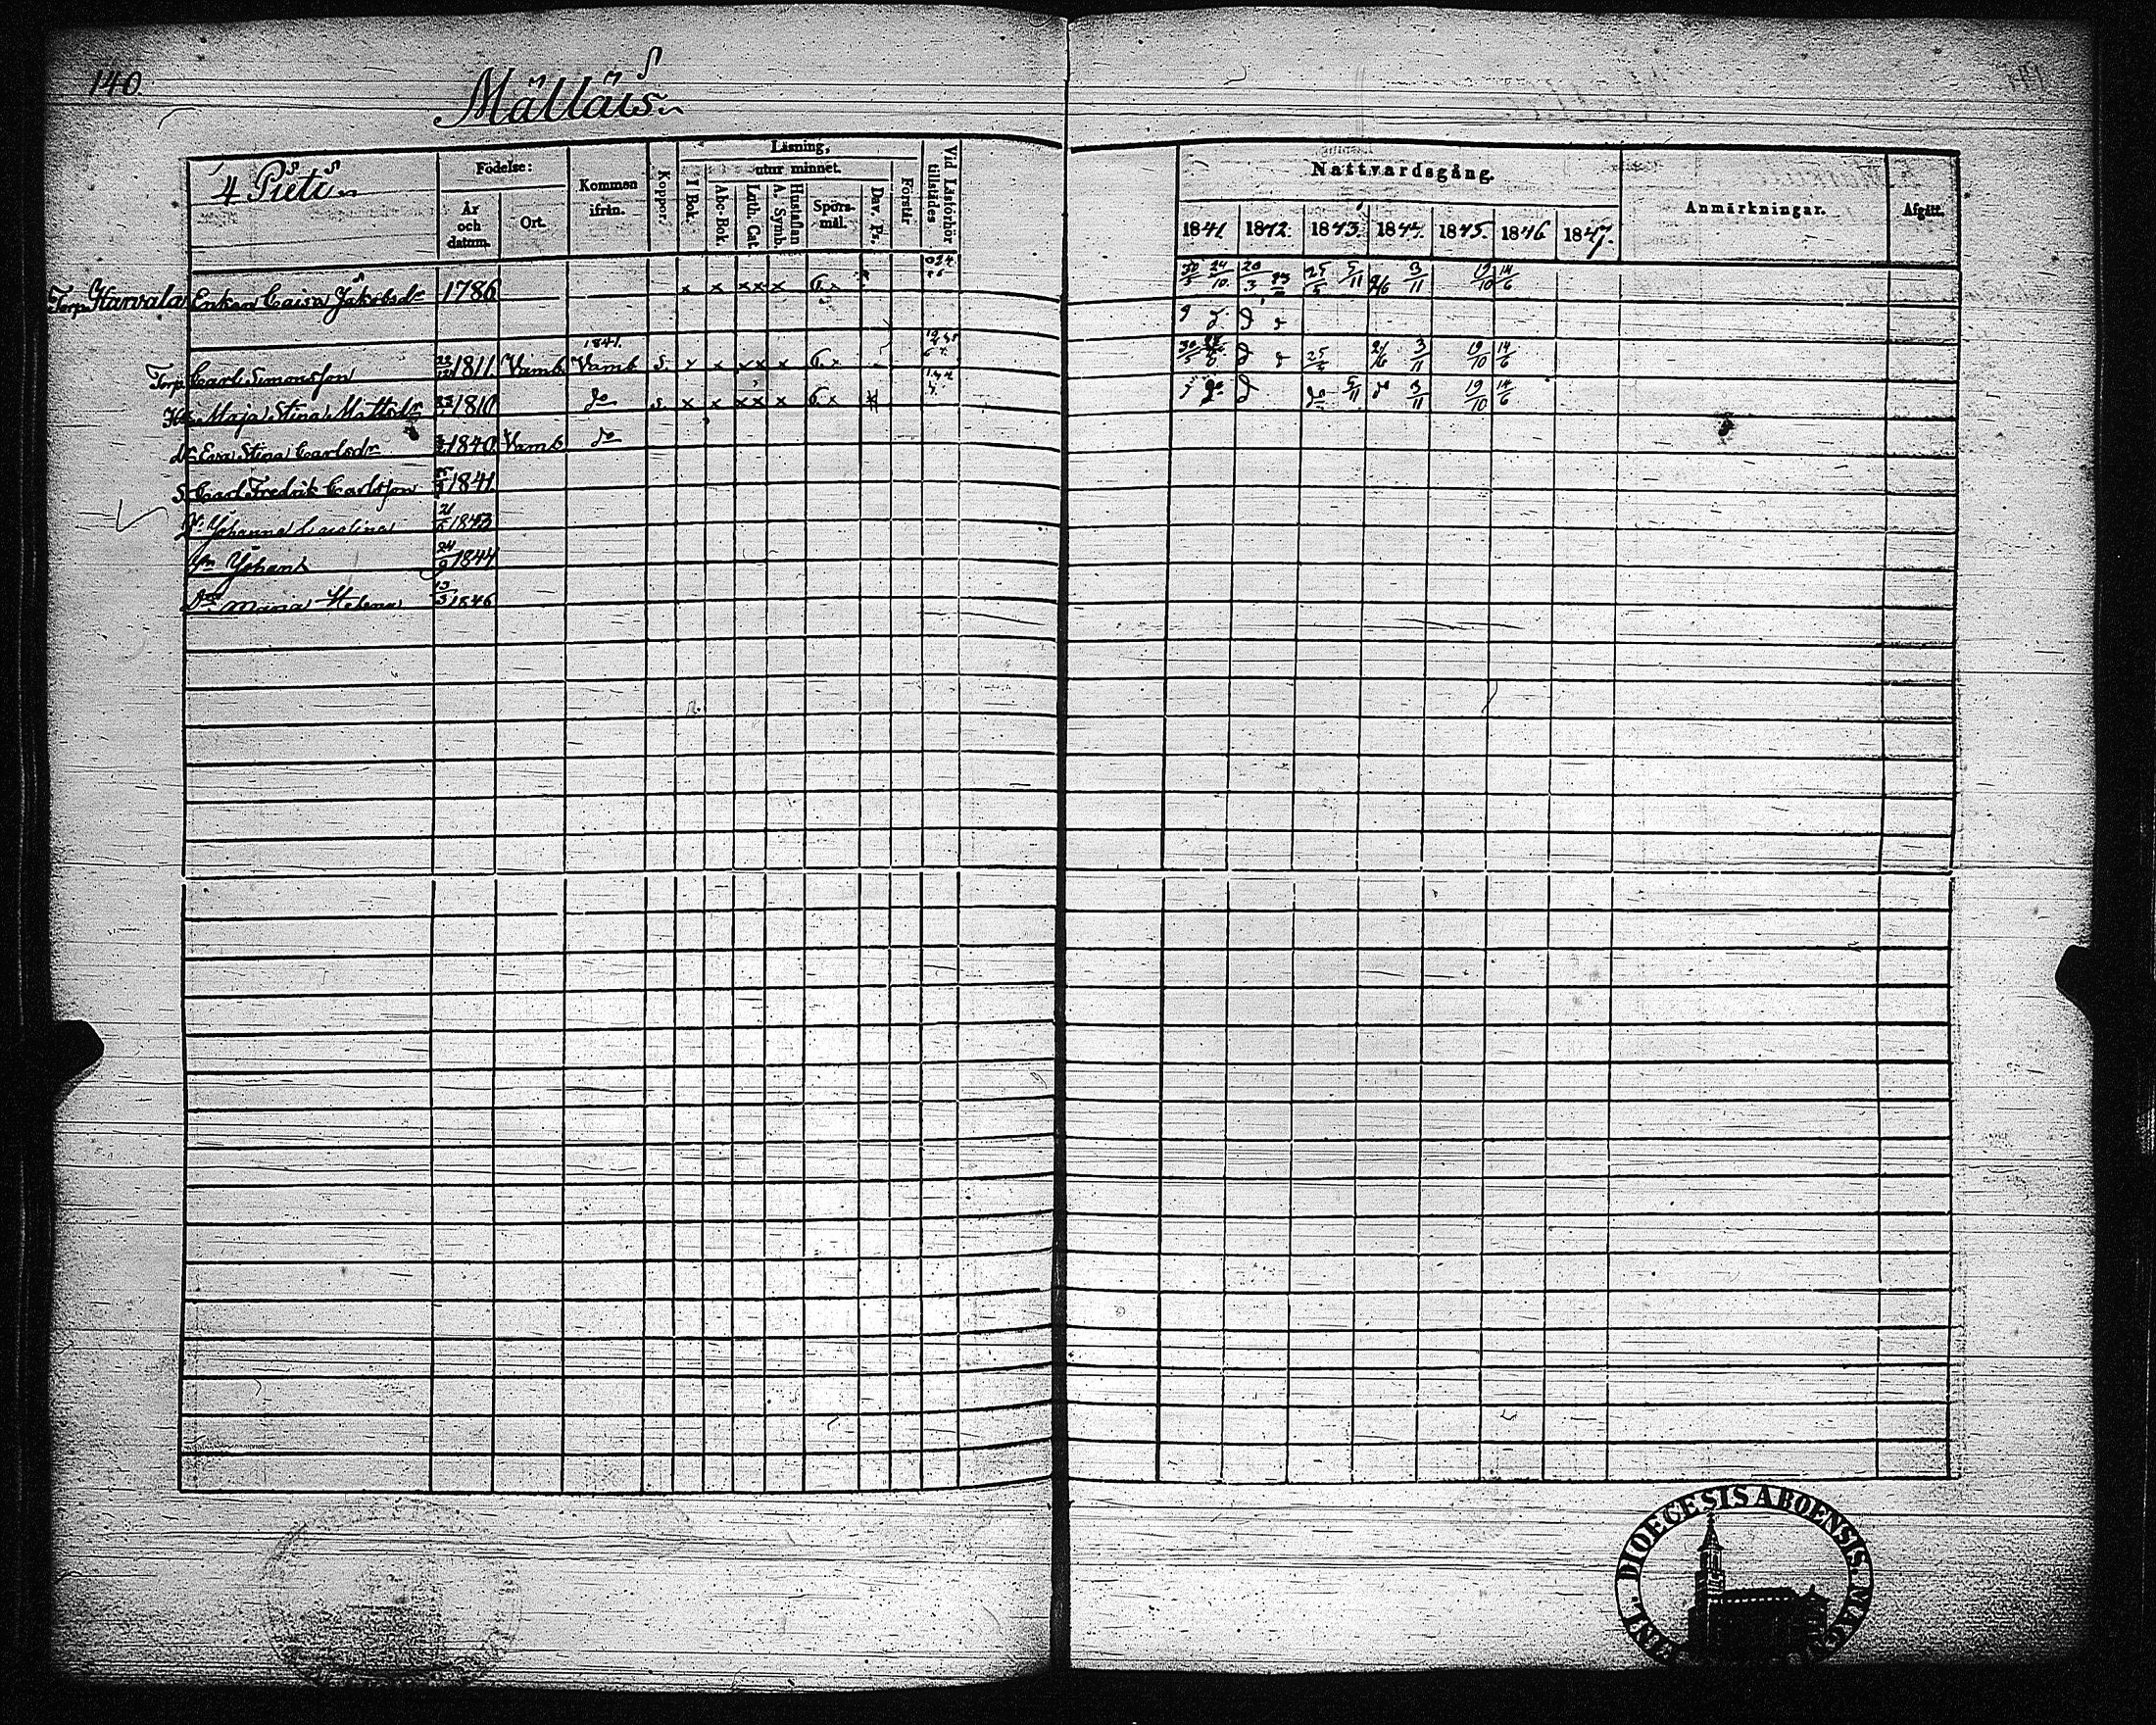 140
Mälläis
4 Pieti
Födelse:
År och datum.
Ort.
Kommen ifrån.
Koppor.
Läsning,
I Bok.
utur minnet.
Abc-Bok.
Luth. Cat.
A. Symb.
Hustaflan
Spörsmål.
Dav. Ps.
Förstår
Vid Läsförhör tillstädes
Nattvardsgång.
1841. 1842. 1843. 1844. 1845. 1846 1847.
Anmärkningar.
Afgått.
Torp. Harvala Enkan Caisa Jakobsdr 1786 x x xx x 30/5 24/10 20/3 25/5 5/11 2/6 3/11 19/10 14/6
1841.
Torp. Carl Simonsson 1811 Vamb Vamb s. x x xx x 30/5 25/5 2/6 3/11 19/10 14/6
Maja Stina Mattsdr 1810 do s. x x xx x do do 5/11 do 3/11 19/10 14/6
dr Eva Stina Carlsdr 1840 Vamb do
S. Carl Fredrik Carlsson 1841
Dr Johanna Carolina 21/5 1843
Sn Johan 24/9 1844
Maria Helena 13/3 1846
DIOECESIS ABOENSIS